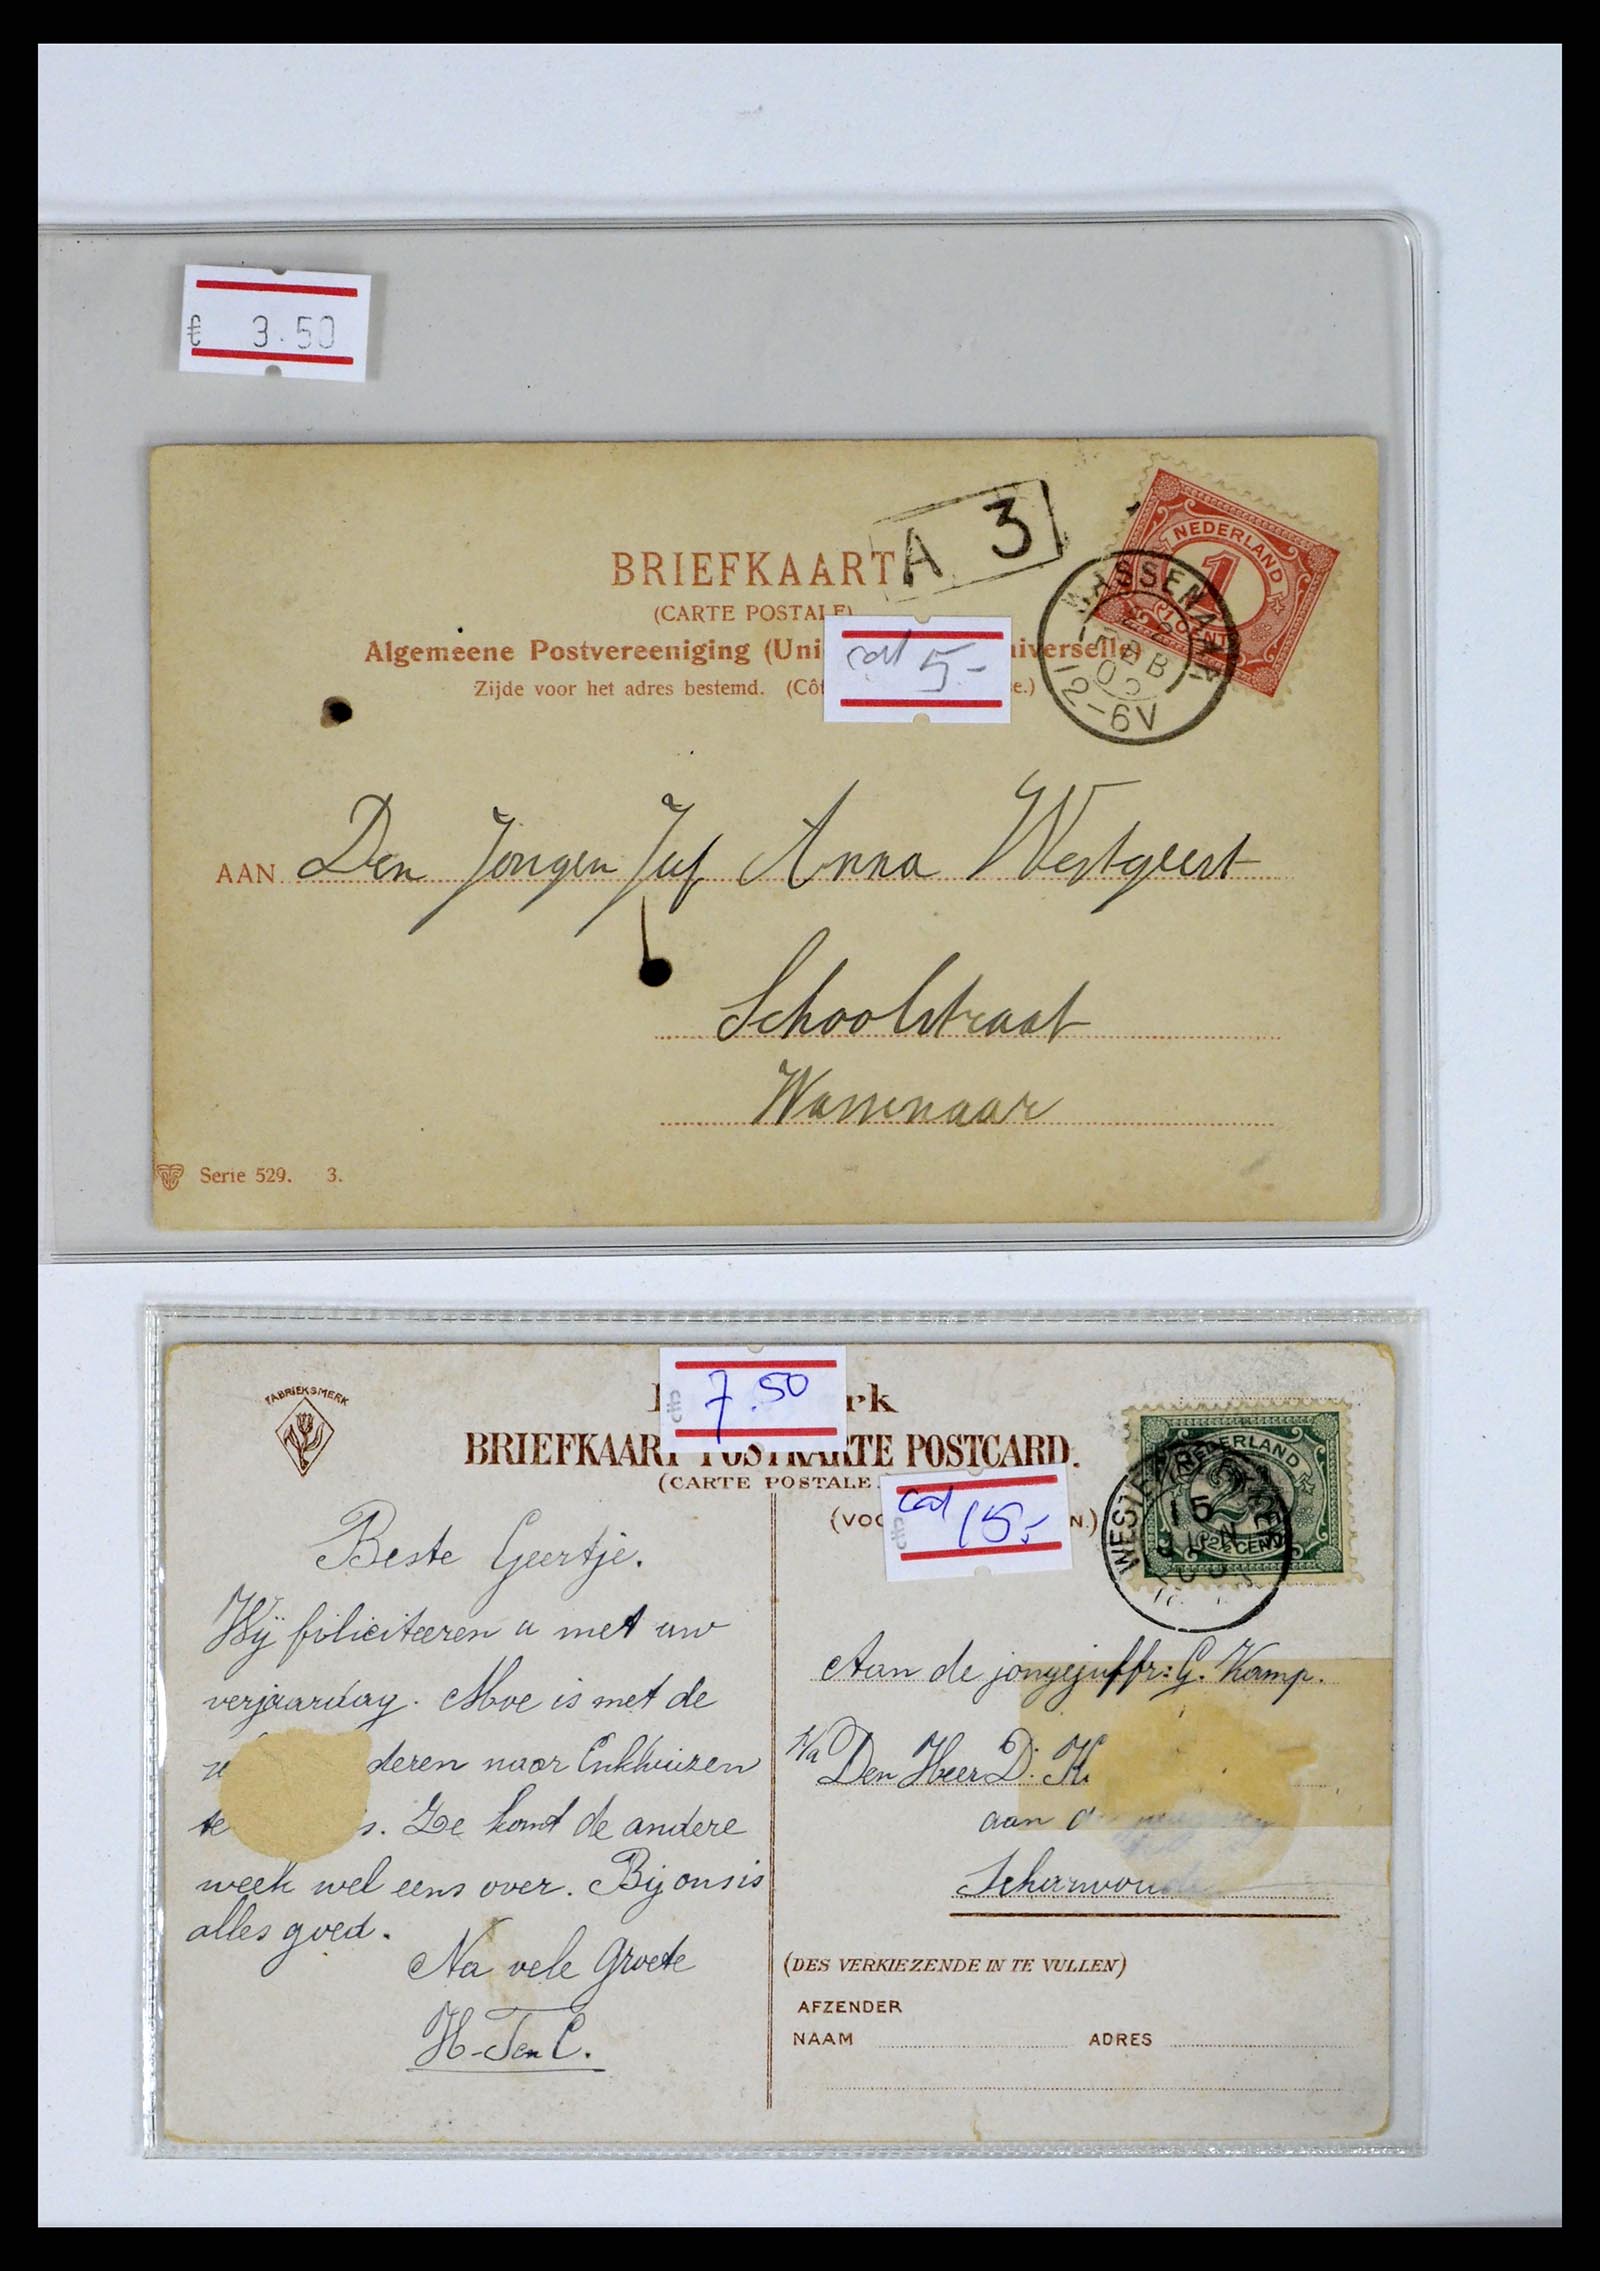 € 3.50
A 3
NEDERLAND
1
1 CENT
WASSENAAR
22
FEB
12-6V
BRIEFKAART
(CARTE POSTALE)
Algemeene Postvereeniging (Uni iverselle)
cat 5-
Zijde voor het adres bestemd. (Côt se.)
AAN Den Jongen Juf Anna Westgeest
Schoolstraat
Wassenaar
Serie 529. 3.
FABRIEKSMERK
7.50
rk
BRIEFKAART POSTKARTE POSTCARD.
(CARTE POSTALE
cat 15,-
(VOO N.)
NEDERLAND
2½
2½ CENT
15
JUN
Beste Geertje.
Wij filiciteeren u met uw
verjaardag. Moe is met de
deren naar Enkhuizen
te s. Ze komt de andere
week wel eens over. Bij ons is
alles goed.
Na vele Groete
H-Ten C.
Aan de jongejuffr: G. Kamp.
Den Heer D. K.
aan d
Scharwoude
(DES VERKIEZENDE IN TE VULLEN)
AFZENDER
NAAM ADRES